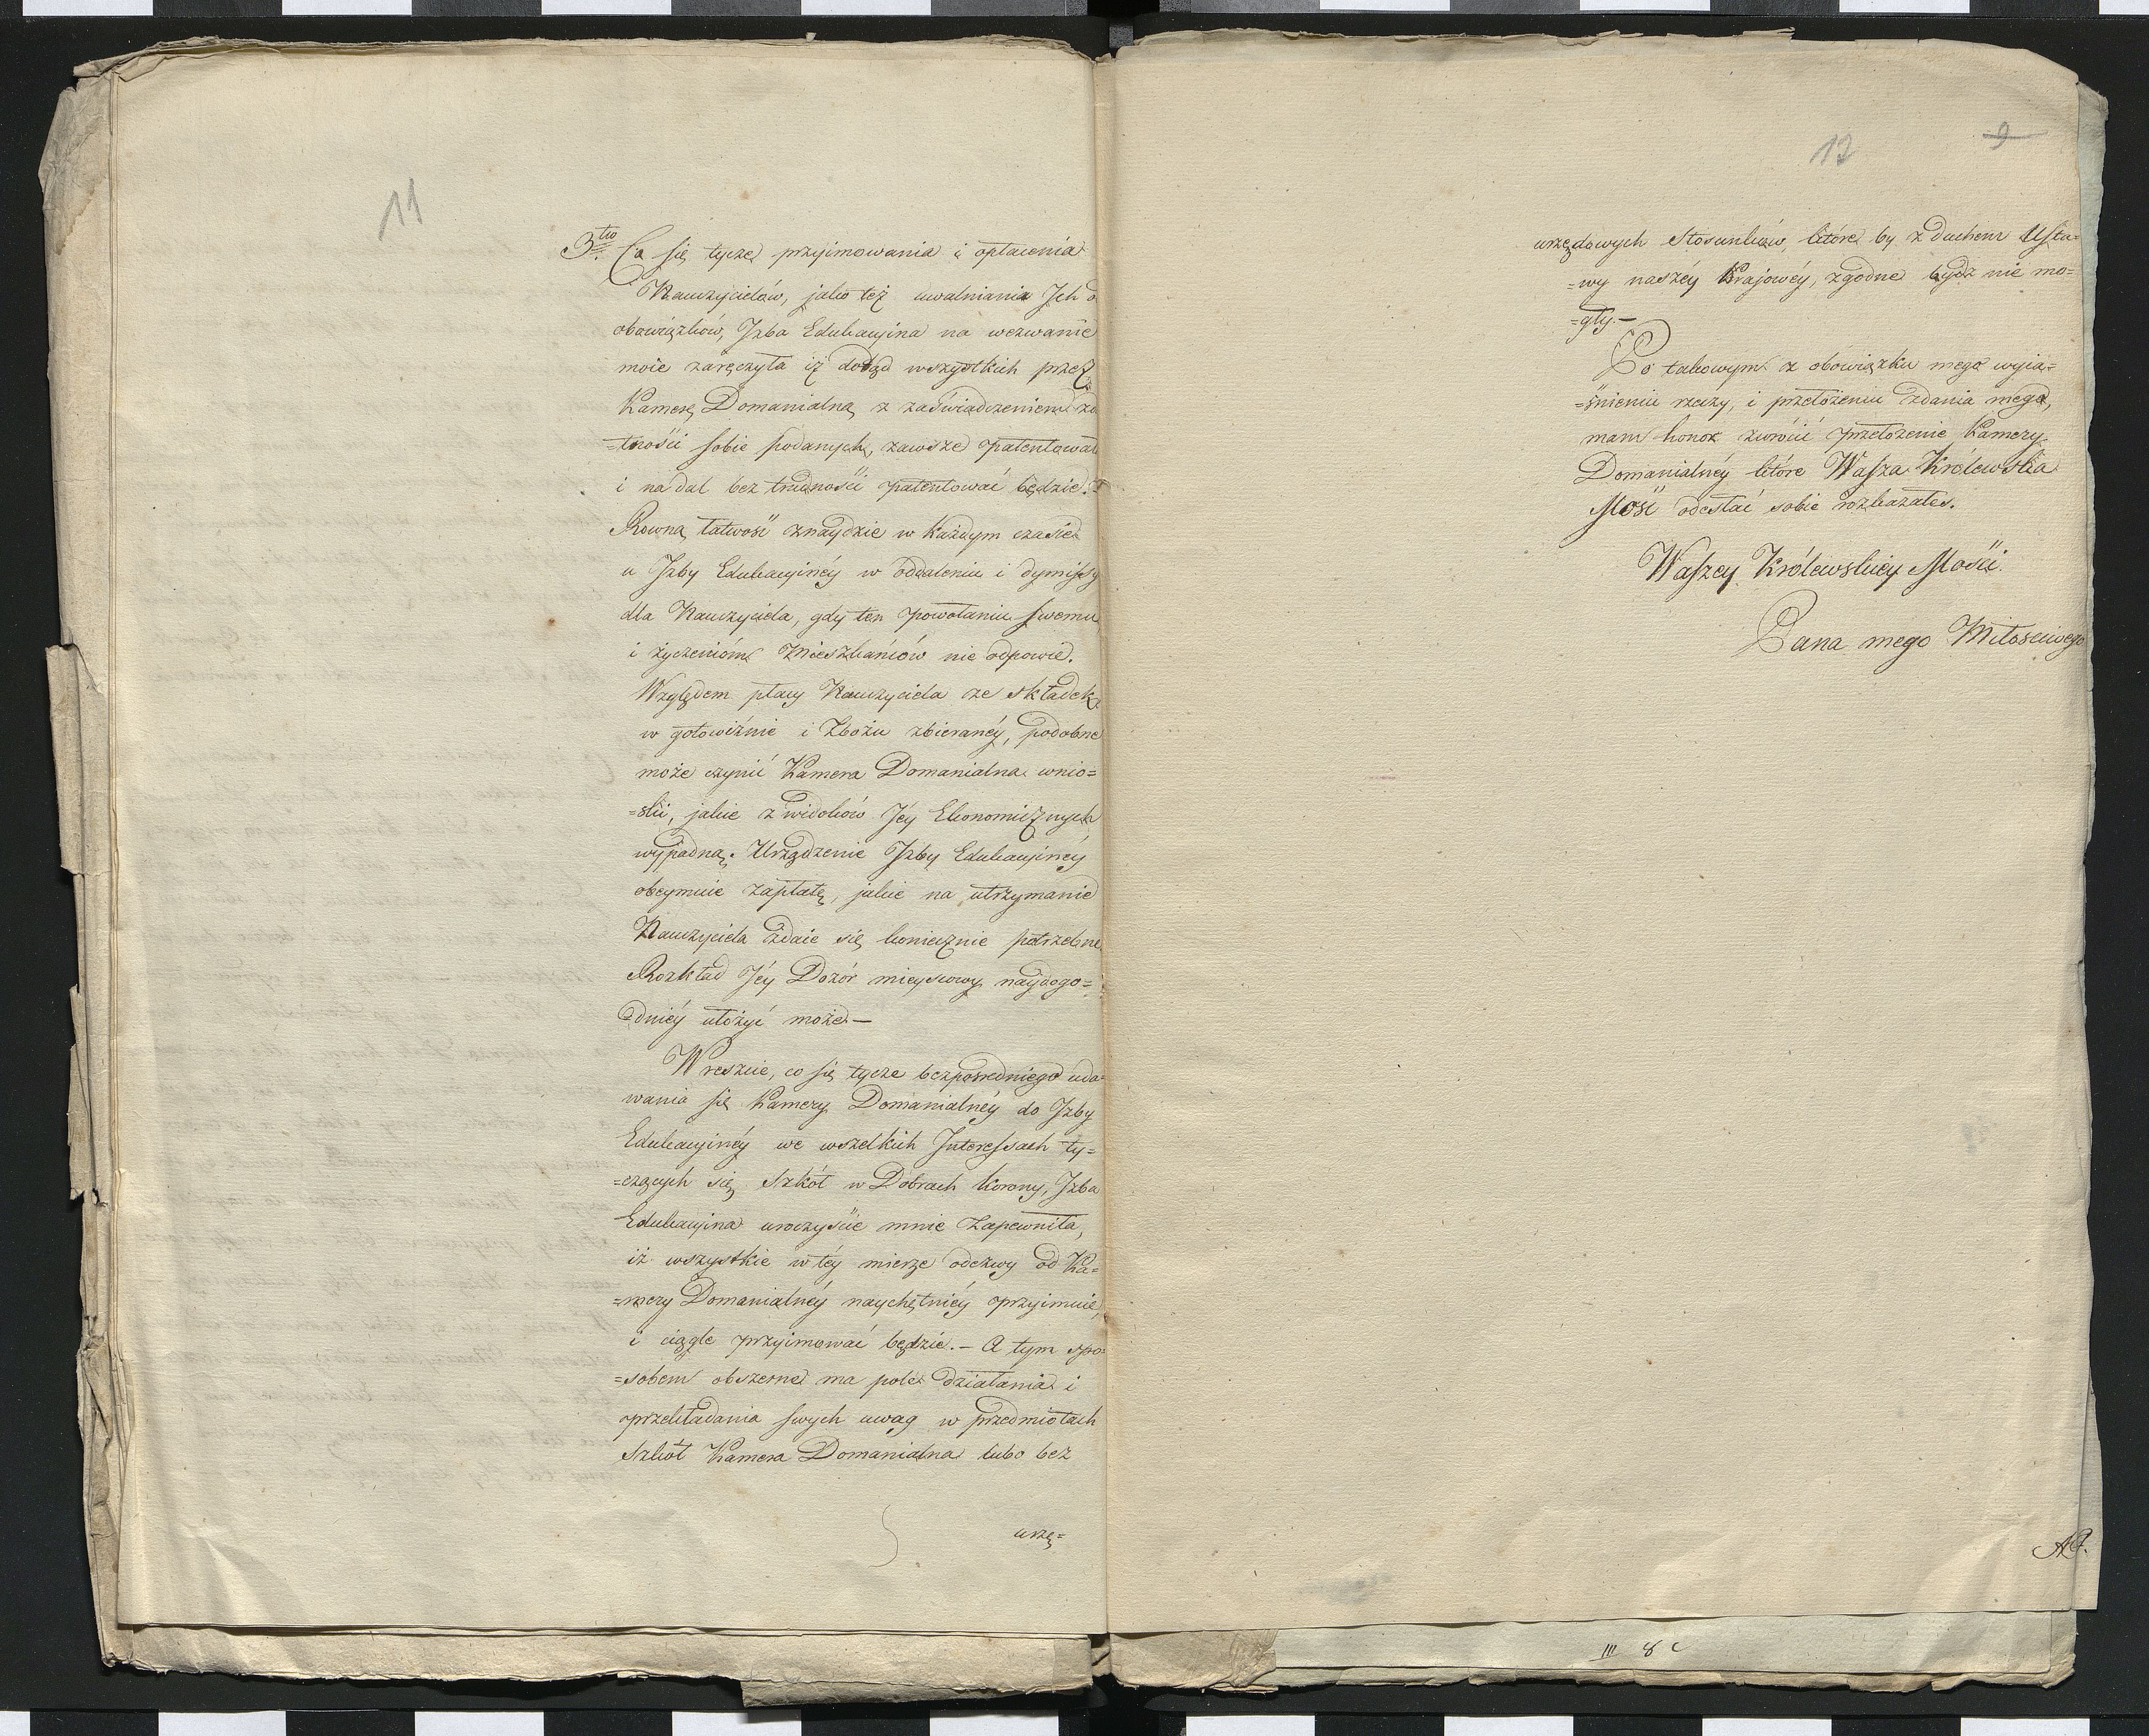 11
3tio Co się tycze przyimowania i opłacenia
Nauczycielów, jako też uwalniania Ich o
obowiązków, Izba Edukacyina na wezwanie
moie zaręczyła iż dotąd wszystkich przez
Kamerę Domanialną z zaświadczeniem zda
=tności sobie podanych, zawsze patentował
i nadal bez trudności patentować będzie.=
Rowną łatwość znaydzie w każdym czasie
u Izby Edukacyinéy w oddaleniu i dymissy
dla Nauczyciela, gdy ten powołaniu swemu
i życzeniom Mieszkańców nie odpowie.
Względem płacy Nauczyciela ze składek
w gotowiźnie i Zbożu zbieranéy, podobne
może czynić Kamera Domanialna wnio=
=ski, jakie z widoków Jéy Ekonomicznych
wypadną. Urządzenie Izby Edukacyinéy
obeymuie zapłatę, jakie na utrzymanie
Nauczyciela zdaie się koniecznie potrzebne
Rozkład Jéy Dozór mieyscowy naydogo=
=dniéy ułożyć może.—
Wreszcie, co się tycze bezposredniego uda=
wania się Kamery Domanialnéy do Izby
Edukacyinéy we wszelkich Interessach ty=
=czących się Szkół w Dobrach Korony, Izba
Edukacyina uroczyście mnie zapewniła,
iż wszystkie w téy mierze odezwy od Ka=
=mery Domanialnéy naychętniéy przyimuie,
i ciągle przyimować będzie.— A tym spo=
=sobem obszerne ma pole działania i
przekładania swych uwag w przedmiotach
Szkół Kamera Domanialna lubo bez
urzę=
12 9
urzędowych Stosunków, które by z duchem Usta=
=wy naszéy Krajowéy, zgodne bydź nie mo=
=gły.—
Po takowym z obowiązku mego wyia=
=śnieniu rzeczy, i przełożeniu zdania mego,
mam honor zwrócić przełożenie Kamery
Domanialnéy które Wasza Królewska
Mość odesłać sobie rozkazałeś.
Waszey Królewskiey Mości
Pana mego Miłosciwego
III 8 c